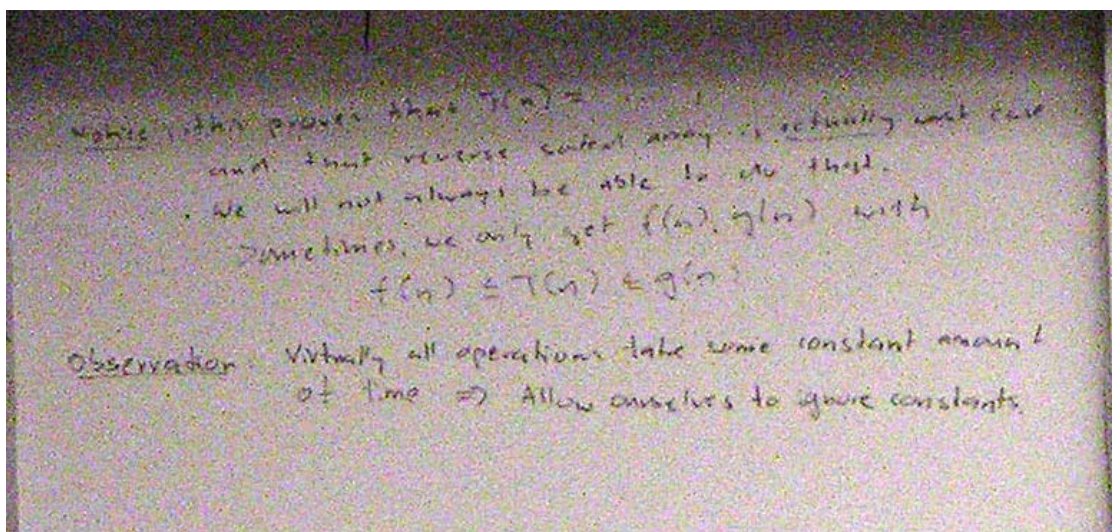 Notice : this proves that T(n) =
and that reverse sorted array is actually worst case
. We will not always be able to do that.
Sometimes, we only get f(n), g(n) with
f(n) ≤ T(n) ≤ g(n)
Observation Virtually all operations take some constant amount
of time ⇒ Allow ourselves to ignore constants.